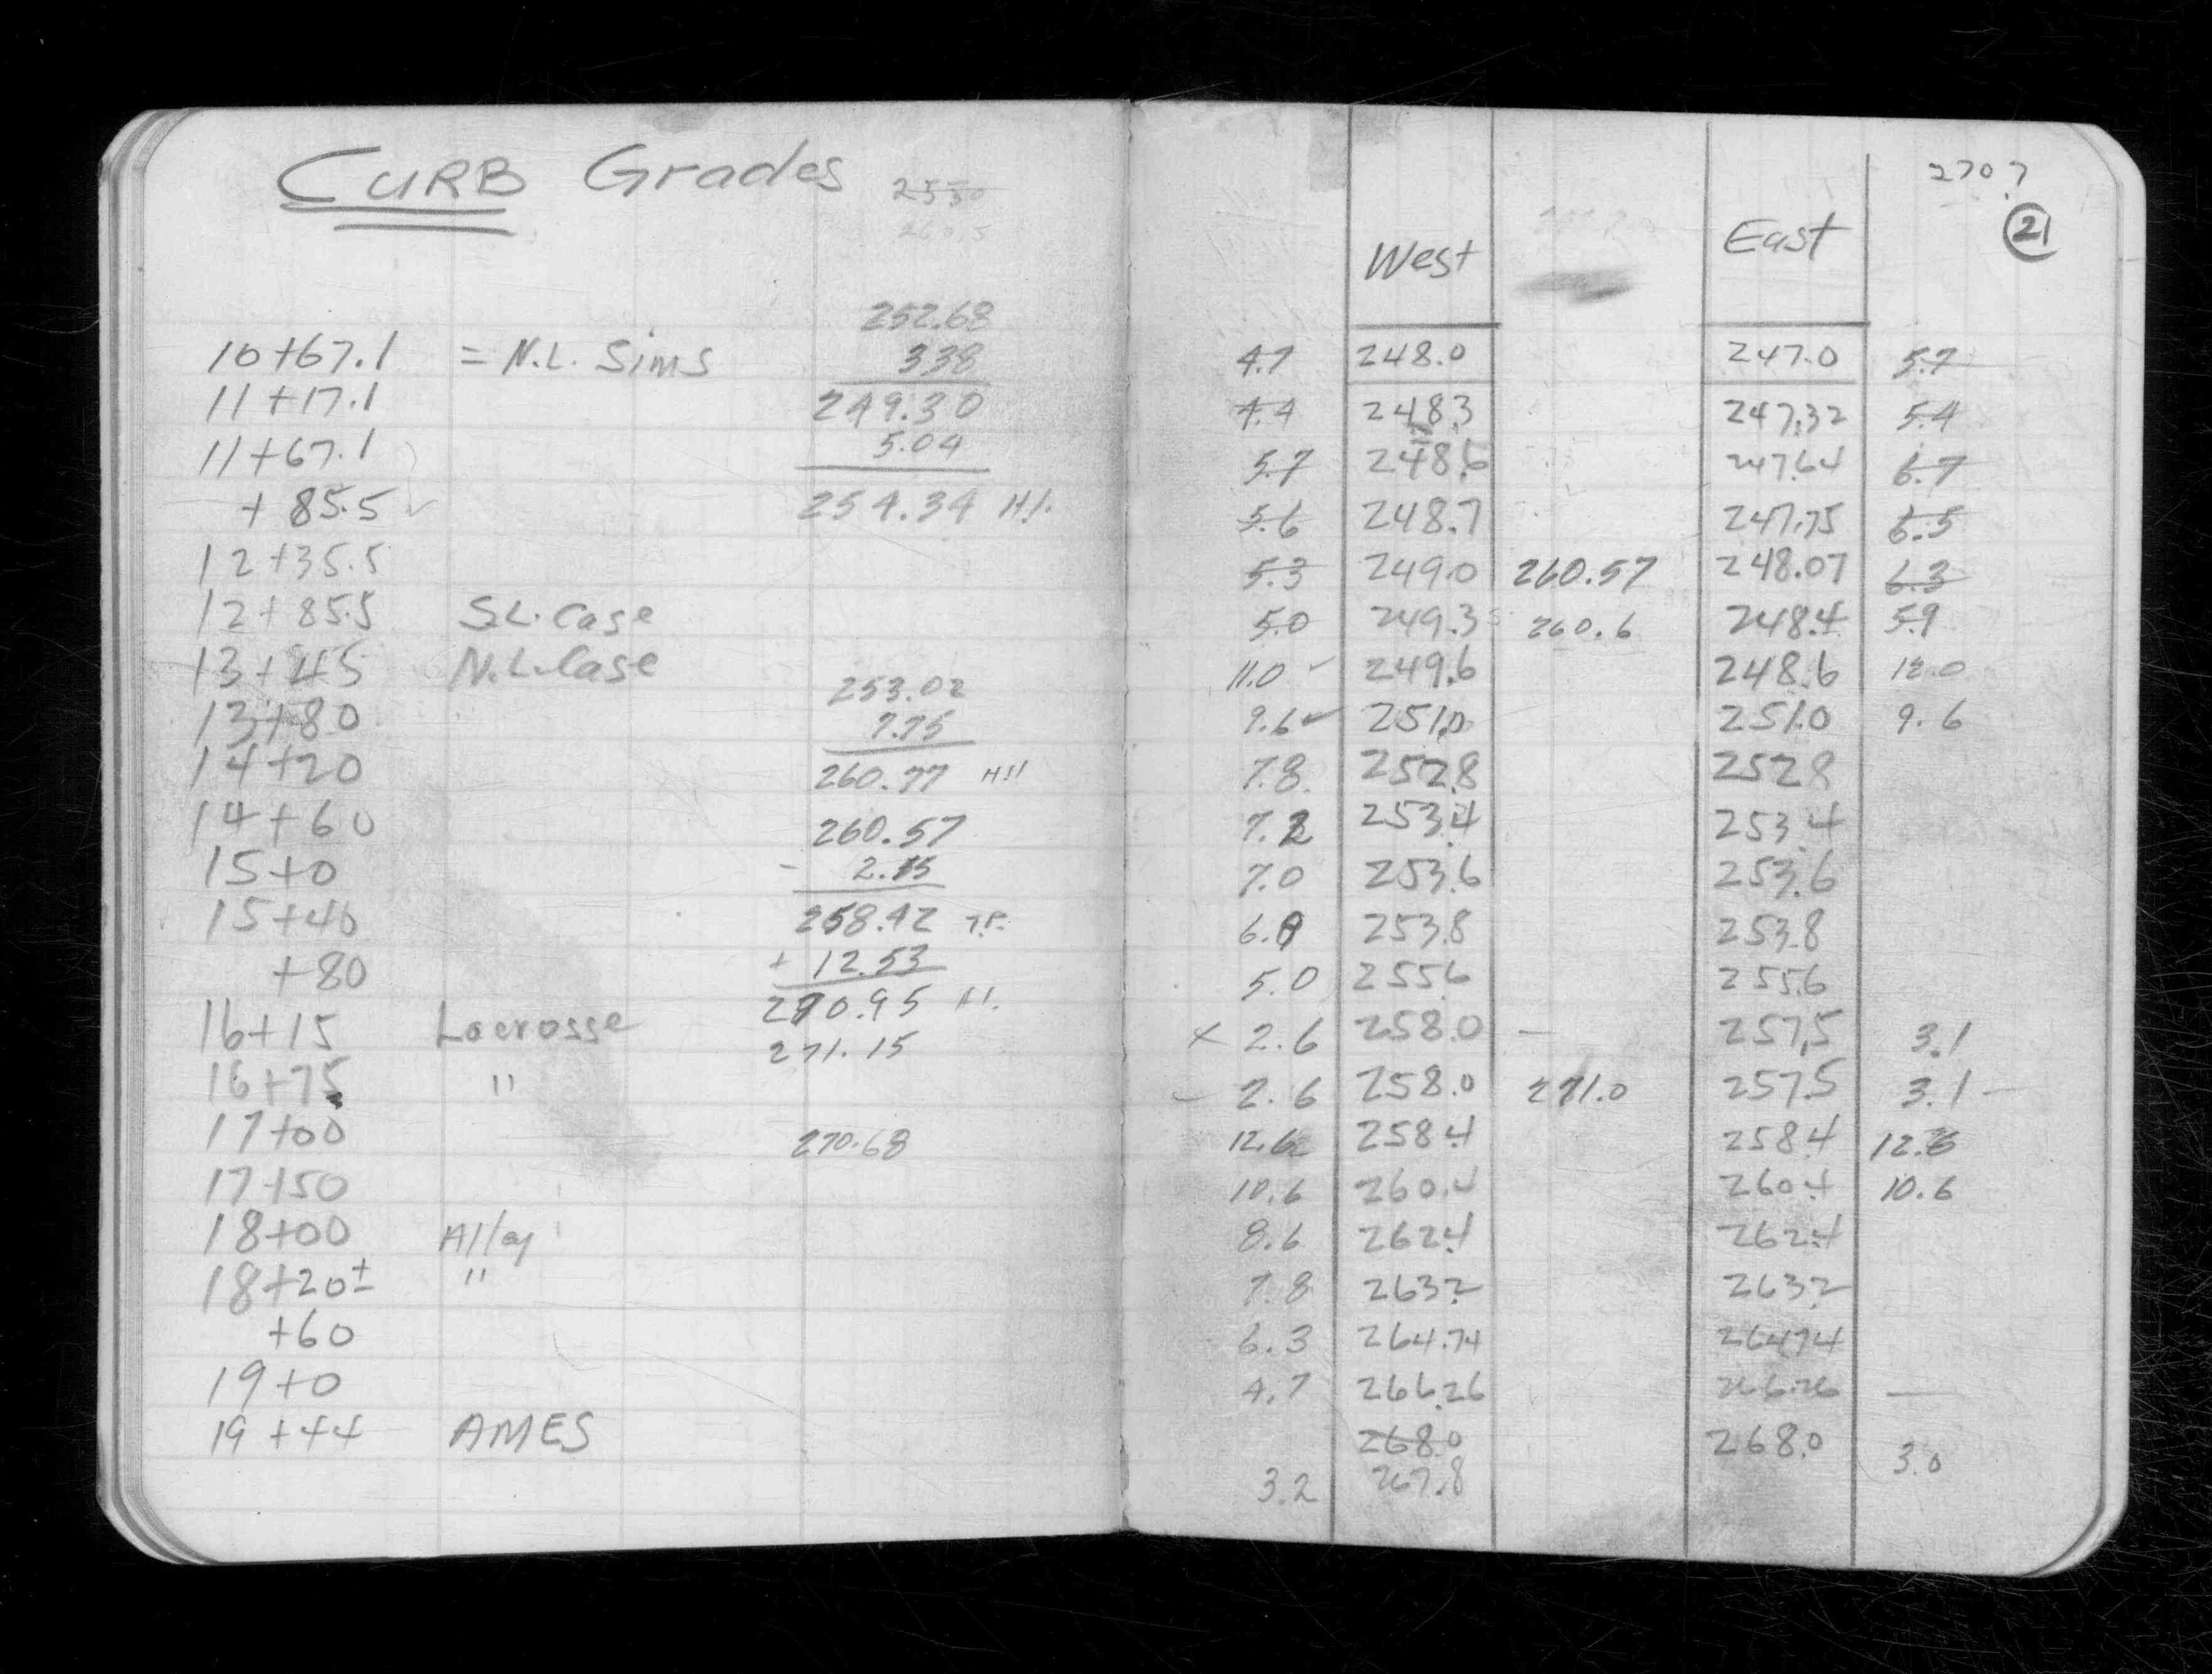 CURB Grades
2550
260.5
252.68
10+67.1 = N.L. Sims 338
11+17.1 249.30
11+67.1 5.04
+ 85.5 254.34 H.I.
12+35.5
12+85.5 S.L. Case
13+45 N.L. Case 253.02
13+80 7.75
14+20 260.77 H.I.
14+60 260.57
15+0 - 2.15
15+40 258.42 T.P.
+80 + 12.53
16+15 Lacrosse 270.95 H.I.
271.15
16+75 "
17+00 270.68
17+50
18+00 Alley
18+20± "
+60
19+0
19+44 AMES
270.7
21
West East
4.7 248.0 247.0 5.7
4.4 248.3 247.32 5.4
5.7 248.6 247.64 6.7
5.6 248.7 247.75 6.5
5.3 249.0 260.57 248.07 6.3
5.0 249.3 260.6 248.4 5.9
11.0 249.6 248.6 12.0
9.6 251.0 251.0 9.6
7.8 252.8 252.8
7.2 253.4 253.4
7.0 253.6 253.6
6.9 253.8 253.8
5.0 255.6 255.6
x 2.6 258.0 — 257.5 3.1
- 2.6 258.0 271.0 257.5 3.1 -
12.6 258.4 258.4 12.6
10.6 260.4 260.4 10.6
8.6 262.4 262.4
7.8 263.2 263.2
6.3 264.74 264.74
4.7 266.26 266.26 —
268.0 268.0 3.0
3.2 267.8